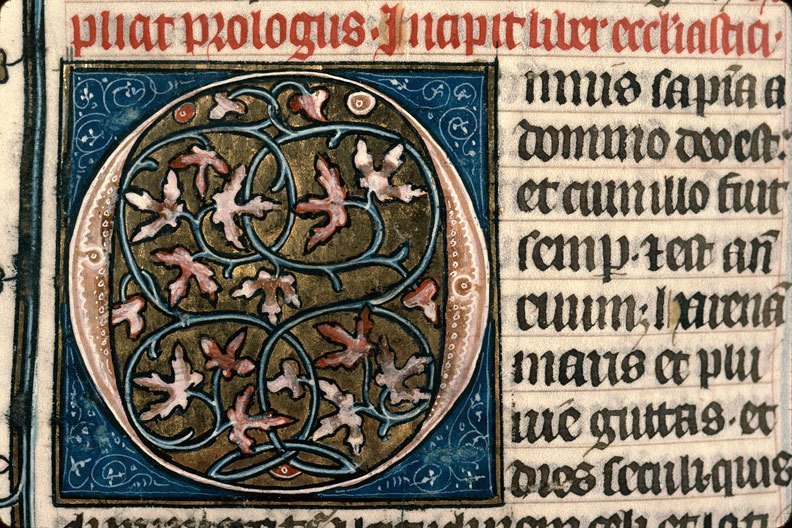 plicit prologus. Incipit liber ecclesiastici.
O mnis sapiẽtia a
domino deo est:
et cum illo fuit
semp. ⁊ est an̄
euum; Harenā
maris et plu
uie guttas. et
dies seculi. quis